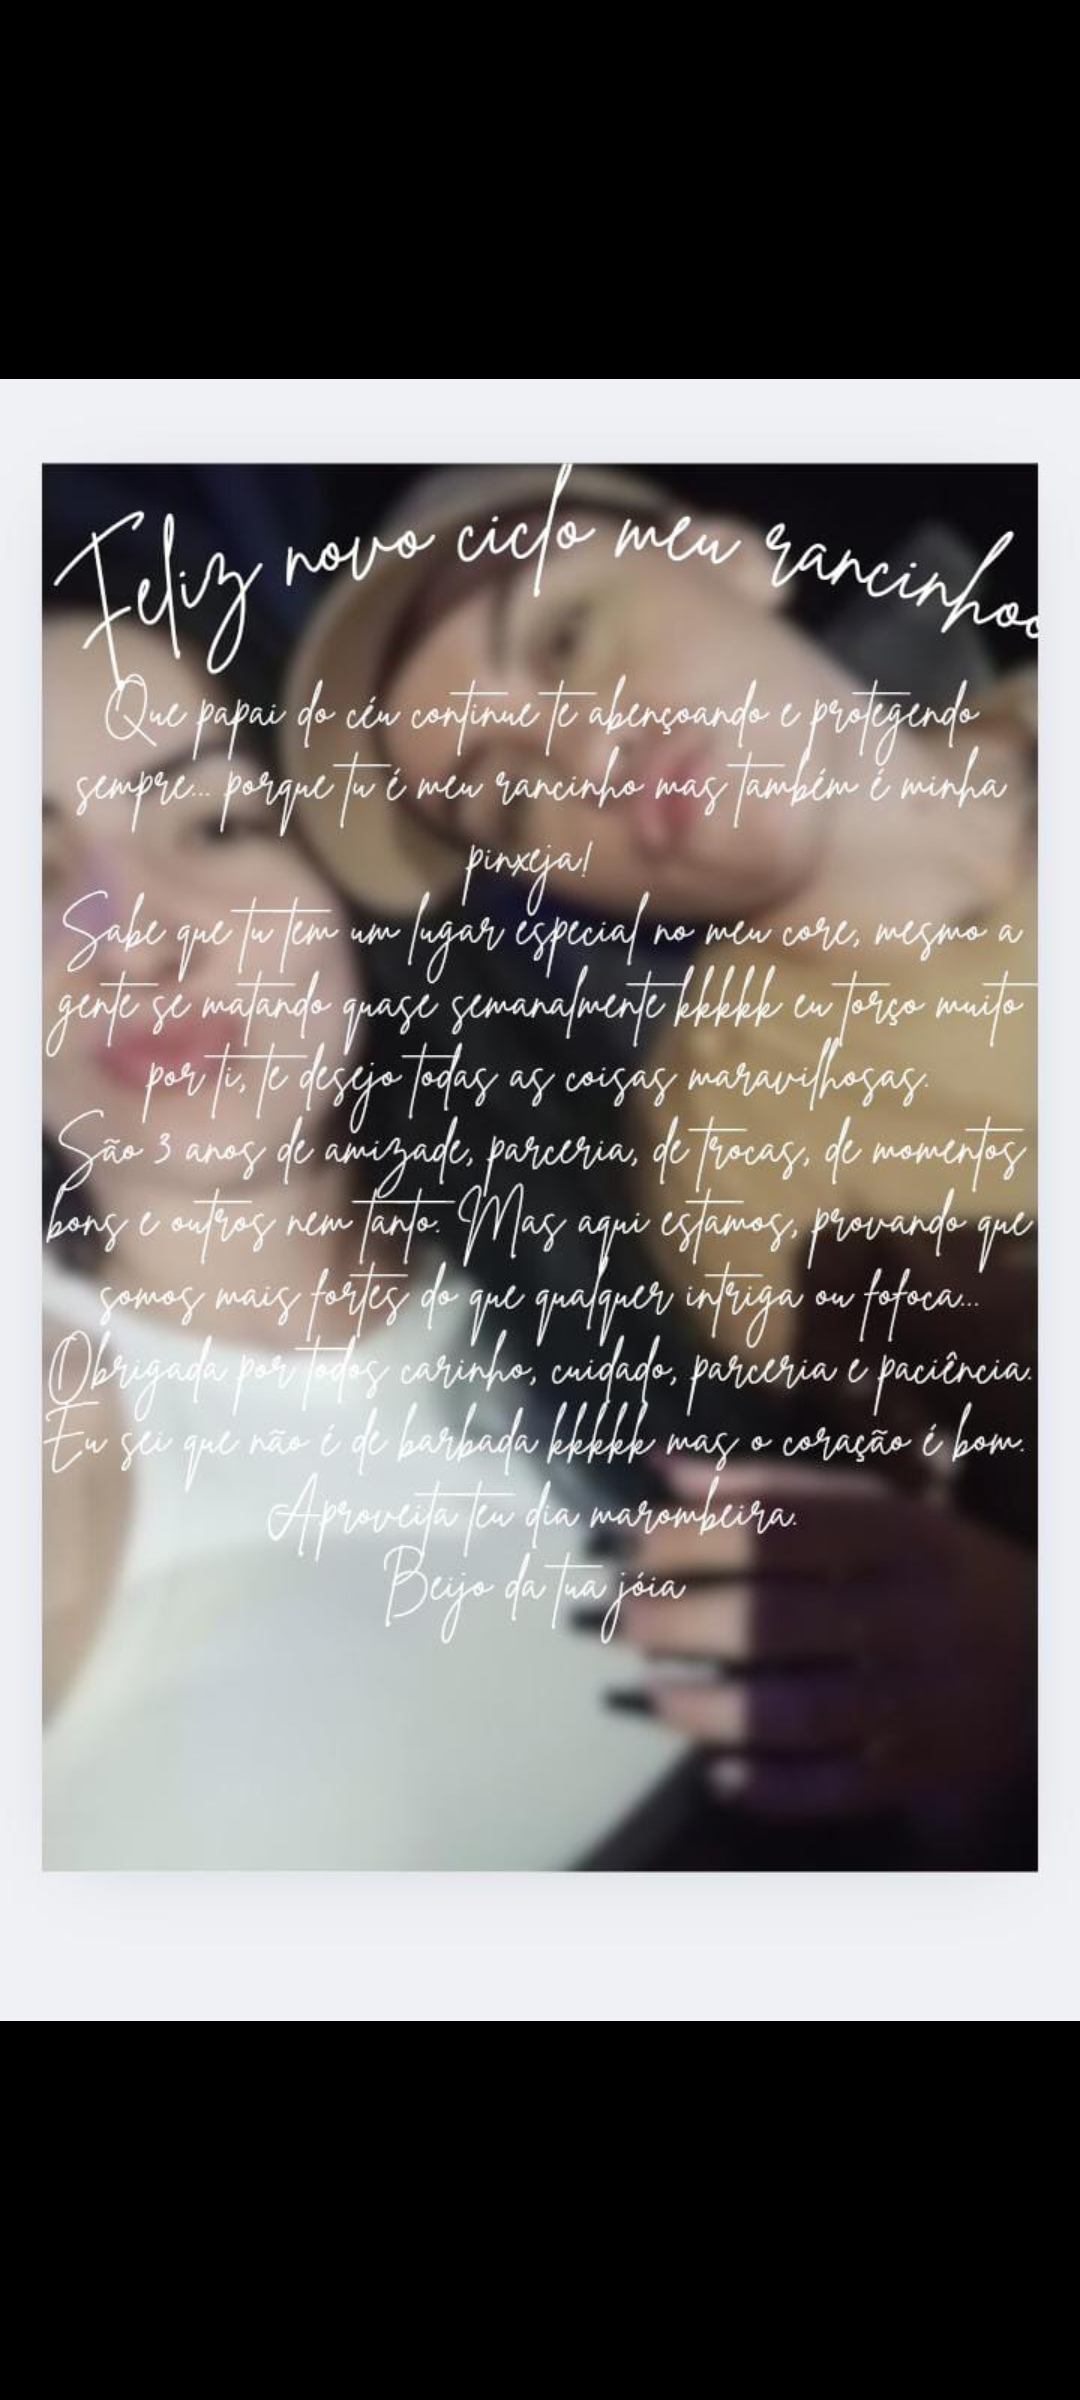 Feliz novo ciclo meu rancinhoo
Que papai do céu continue te abençoando e protegendo
sempre... porque tu é meu rancinho mas também é minha
pinxeja!
Sabe que tu tem um lugar especial no meu core, mesmo a
gente se matando quase semanalmente kkkkk eu torço muito
por ti, te desejo todas as coisas maravilhosas.
São 3 anos de amizade, parceria, de trocas, de momentos
bons e outros nem tanto. Mas aqui estamos, provando que
somos mais fortes do que qualquer intriga ou fofoca...
Obrigada por todos carinho, cuidado, parceria e paciência.
Eu sei que não é de barbada kkkkk mas o coração é bom.
Aproveita teu dia marombeira.
Beijo da tua jóia